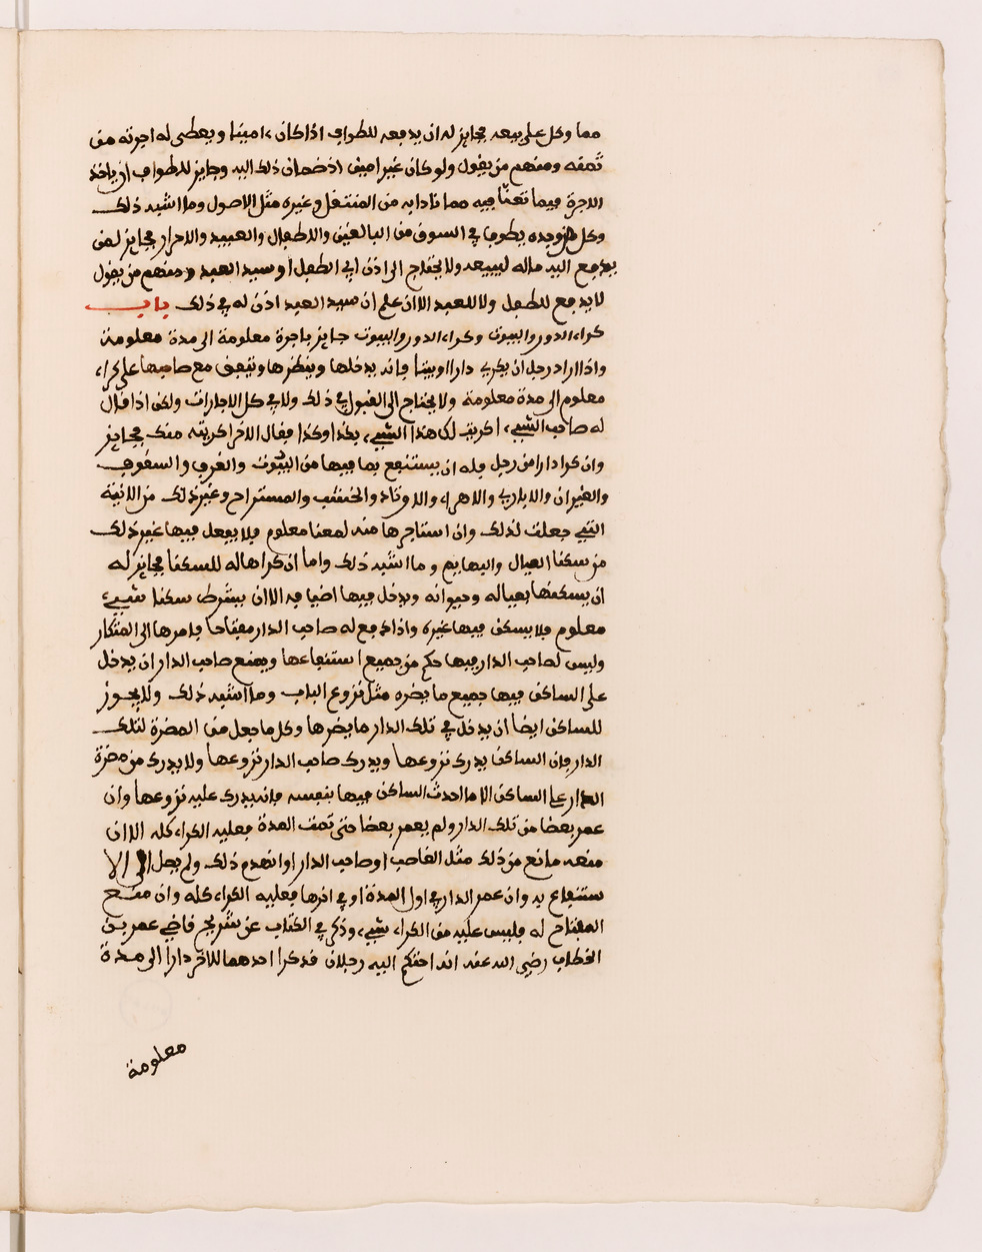 مما وكل على بيعه فجايز له ان يدفعه للطواف اذا كان امينا ويعطى له اجرته من
ثمنه ومنهم من يقول ولو كان غير امين اذ ضمان ذلك اليه وجايز للطواف ان ياخذ
الاجرة فيما تعنّا فيه مما نادا به من المنتقل وغيره مثل الاصول وما اشبه ذلك
وكل من وجده يطوف في السوق من البالغين والاطفال والعبيد والاحرار فجايز لمن
يدفع اليه ماله ليبيعه ولا يحتاج الى اذن ابي الطفل او سيد العبد ومنهم من يقول
لا يدفع للطفل ولا للعبد الا ان علم ان سيد العبد اذن له في ذلك باب
كراء الدور والبيوت وكراء الدور والبيوت جايز باجرة معلومة الى مدة معلومة
واذا اراد رجل ان يكري دارا او بيتا فانه يدخلها وينظرها ويتفق مع صاحبها على كراء
معلوم الى مدة معلومة ولا يحتاج الى القبول في ذلك ولا في كل الاجارات ولكن اذا قال
له صاحب الشيء اكريت لك هذا الشيء بكذا وكذا فقال الاخر اكريته منك فجايز
وان كرا دارا من رجل فله ان يستنفع بما فيها من البيوت والغرف والسقوف
والغيران والابلرے والاهراء والاوتاد والخشب والمستراح وغير ذلك من الابنية
التي جعلت لذلك وان استاجرها منه لمعنا معلوم فلا يفعل فيها غير ذلك
من سكنا العيال والبهايم وما اشبه ذلك واما ان كراها له للسكنا فجايز له
ان يسكنها بعياله وحيوانه ويدخل فيها اضيافه الا ان يشترط سكنا شيء
معلوم فلا يسكن فيها غيره واذا دفع له صاحب الدار مفتاحا فامرها الى المتكار
وليس لصاحب الدار فيها حكم من جميع استنفاعها ويمنع صاحب الدار ان يدخل
على الساكن فيها جميع ما يضره مثل نزوع الباب وما اشبه ذلك ولا يجوز
للساكن ايضا ان يدخل في تلك الدار ما يضرها وكل ما جعل من المضرة لتلك
الدار فان الساكن يدرك نزوعها ويدرك صاحب الدار نزوعها ولا يدرك من مضرة
الدار على الساكن الا ما احدث الساكن فيها بنفسه فانه يدرك عليه نزوعها وان
عمر بعضا من تلك الدار ولم يعمر بعضا حتى تمت المدة فعليه الكراء كله الا ان
منعه مانع من ذلك مثل الغاصب او صاحب الدار او انهدم ذلك ولم يصل الى الا
ستنفاع به وان عمر الدار في اول المدة او في اخرها فعليه الكراء كله وان منع
المفتاح له فليس عليه من الكراء شيء وذكر في الكتاب عن شريح قاضي عمر بن
الخطاب رضي الله عنه انه احتكم اليه رجلان قد كرا احدهما للاخر دارا الى مدة
معلومة